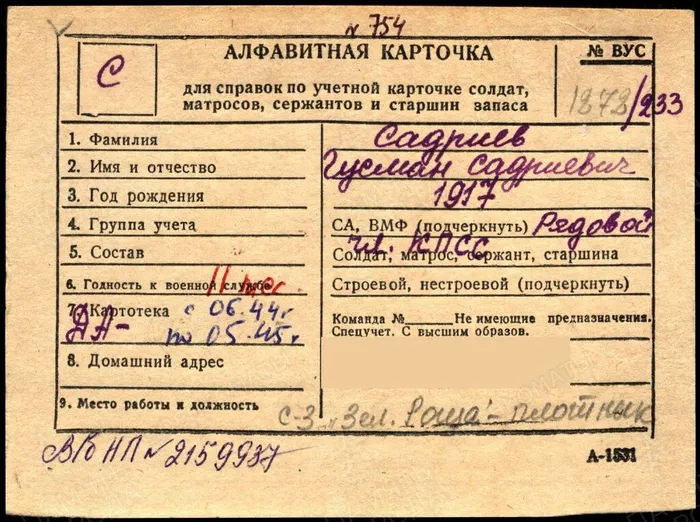 № 754
С
АЛФАВИТНАЯ КАРТОЧКА
№ ВУС
для справок по учетной карточке солдат,
матросов, сержантов и старшин запаса
1878/233
1. Фамилия Садриев
2. Имя и отчество Гусман Садриевич
3. Год рождения 1917
4. Группа учета СА, ВМФ (подчеркнуть) Рядовой
чл. КПСС
5. Состав Солдат, матрос, сержант, старшина
6. Годность к военной службе 11 мес. Строевой, нестроевой (подчеркнуть)
7. Картотека с 06.44г Команда №______ Не имеющие предназначения.
ДА- по 05.45г Спецучет. С высшим образов.
8. Домашний адрес
9. Место работы и должность с-з "Зел. Роща" - плотник
ВБ НП № 2159937
А-1531